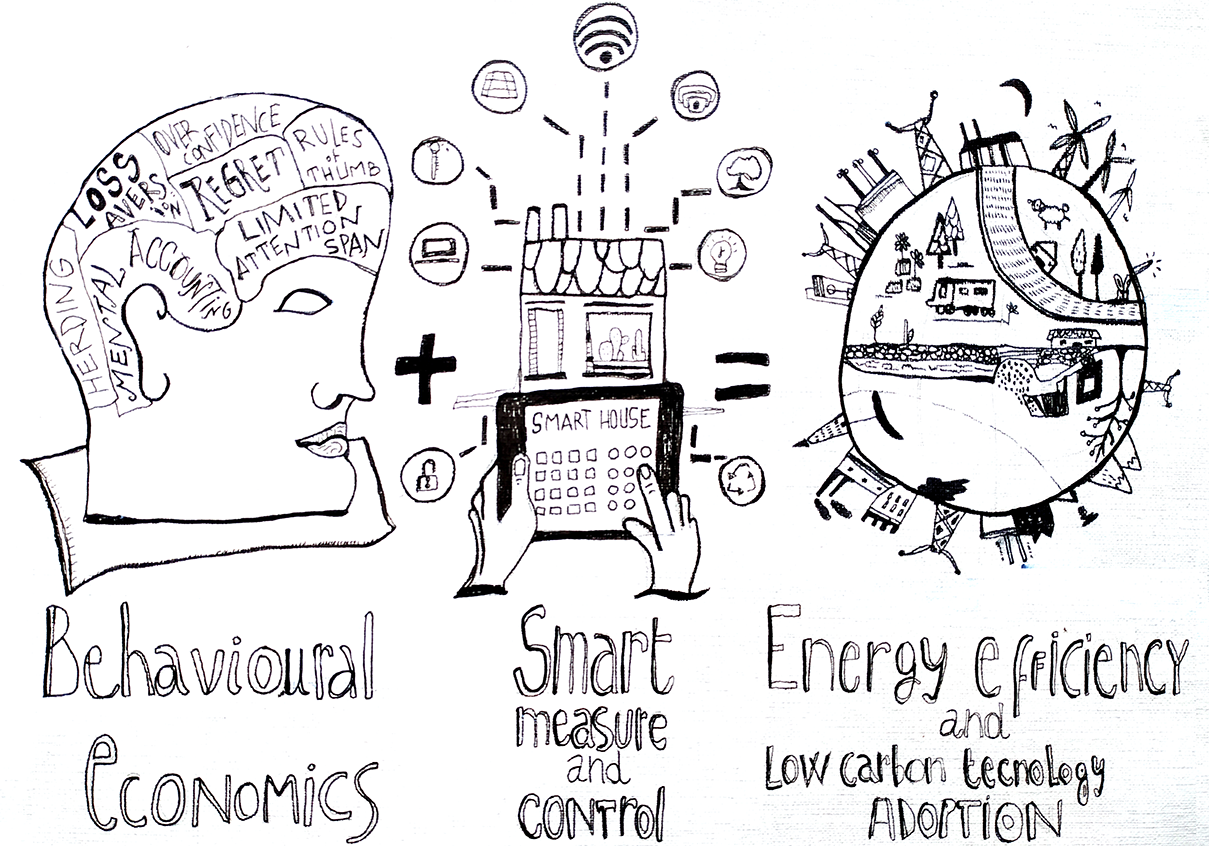 LOSS
AVERSION
OVER
CONFIDENCE
REGRET
RULES
of
THUMB
LIMITED
ATTENTION
SPAN
MENTAL ACCOUNTING
HERDING
+
SMART HOUSE
=
Behavioural
economics
Smart
measure
and
control
Energy efficiency
and
Low carbon tecnology
ADOPTION